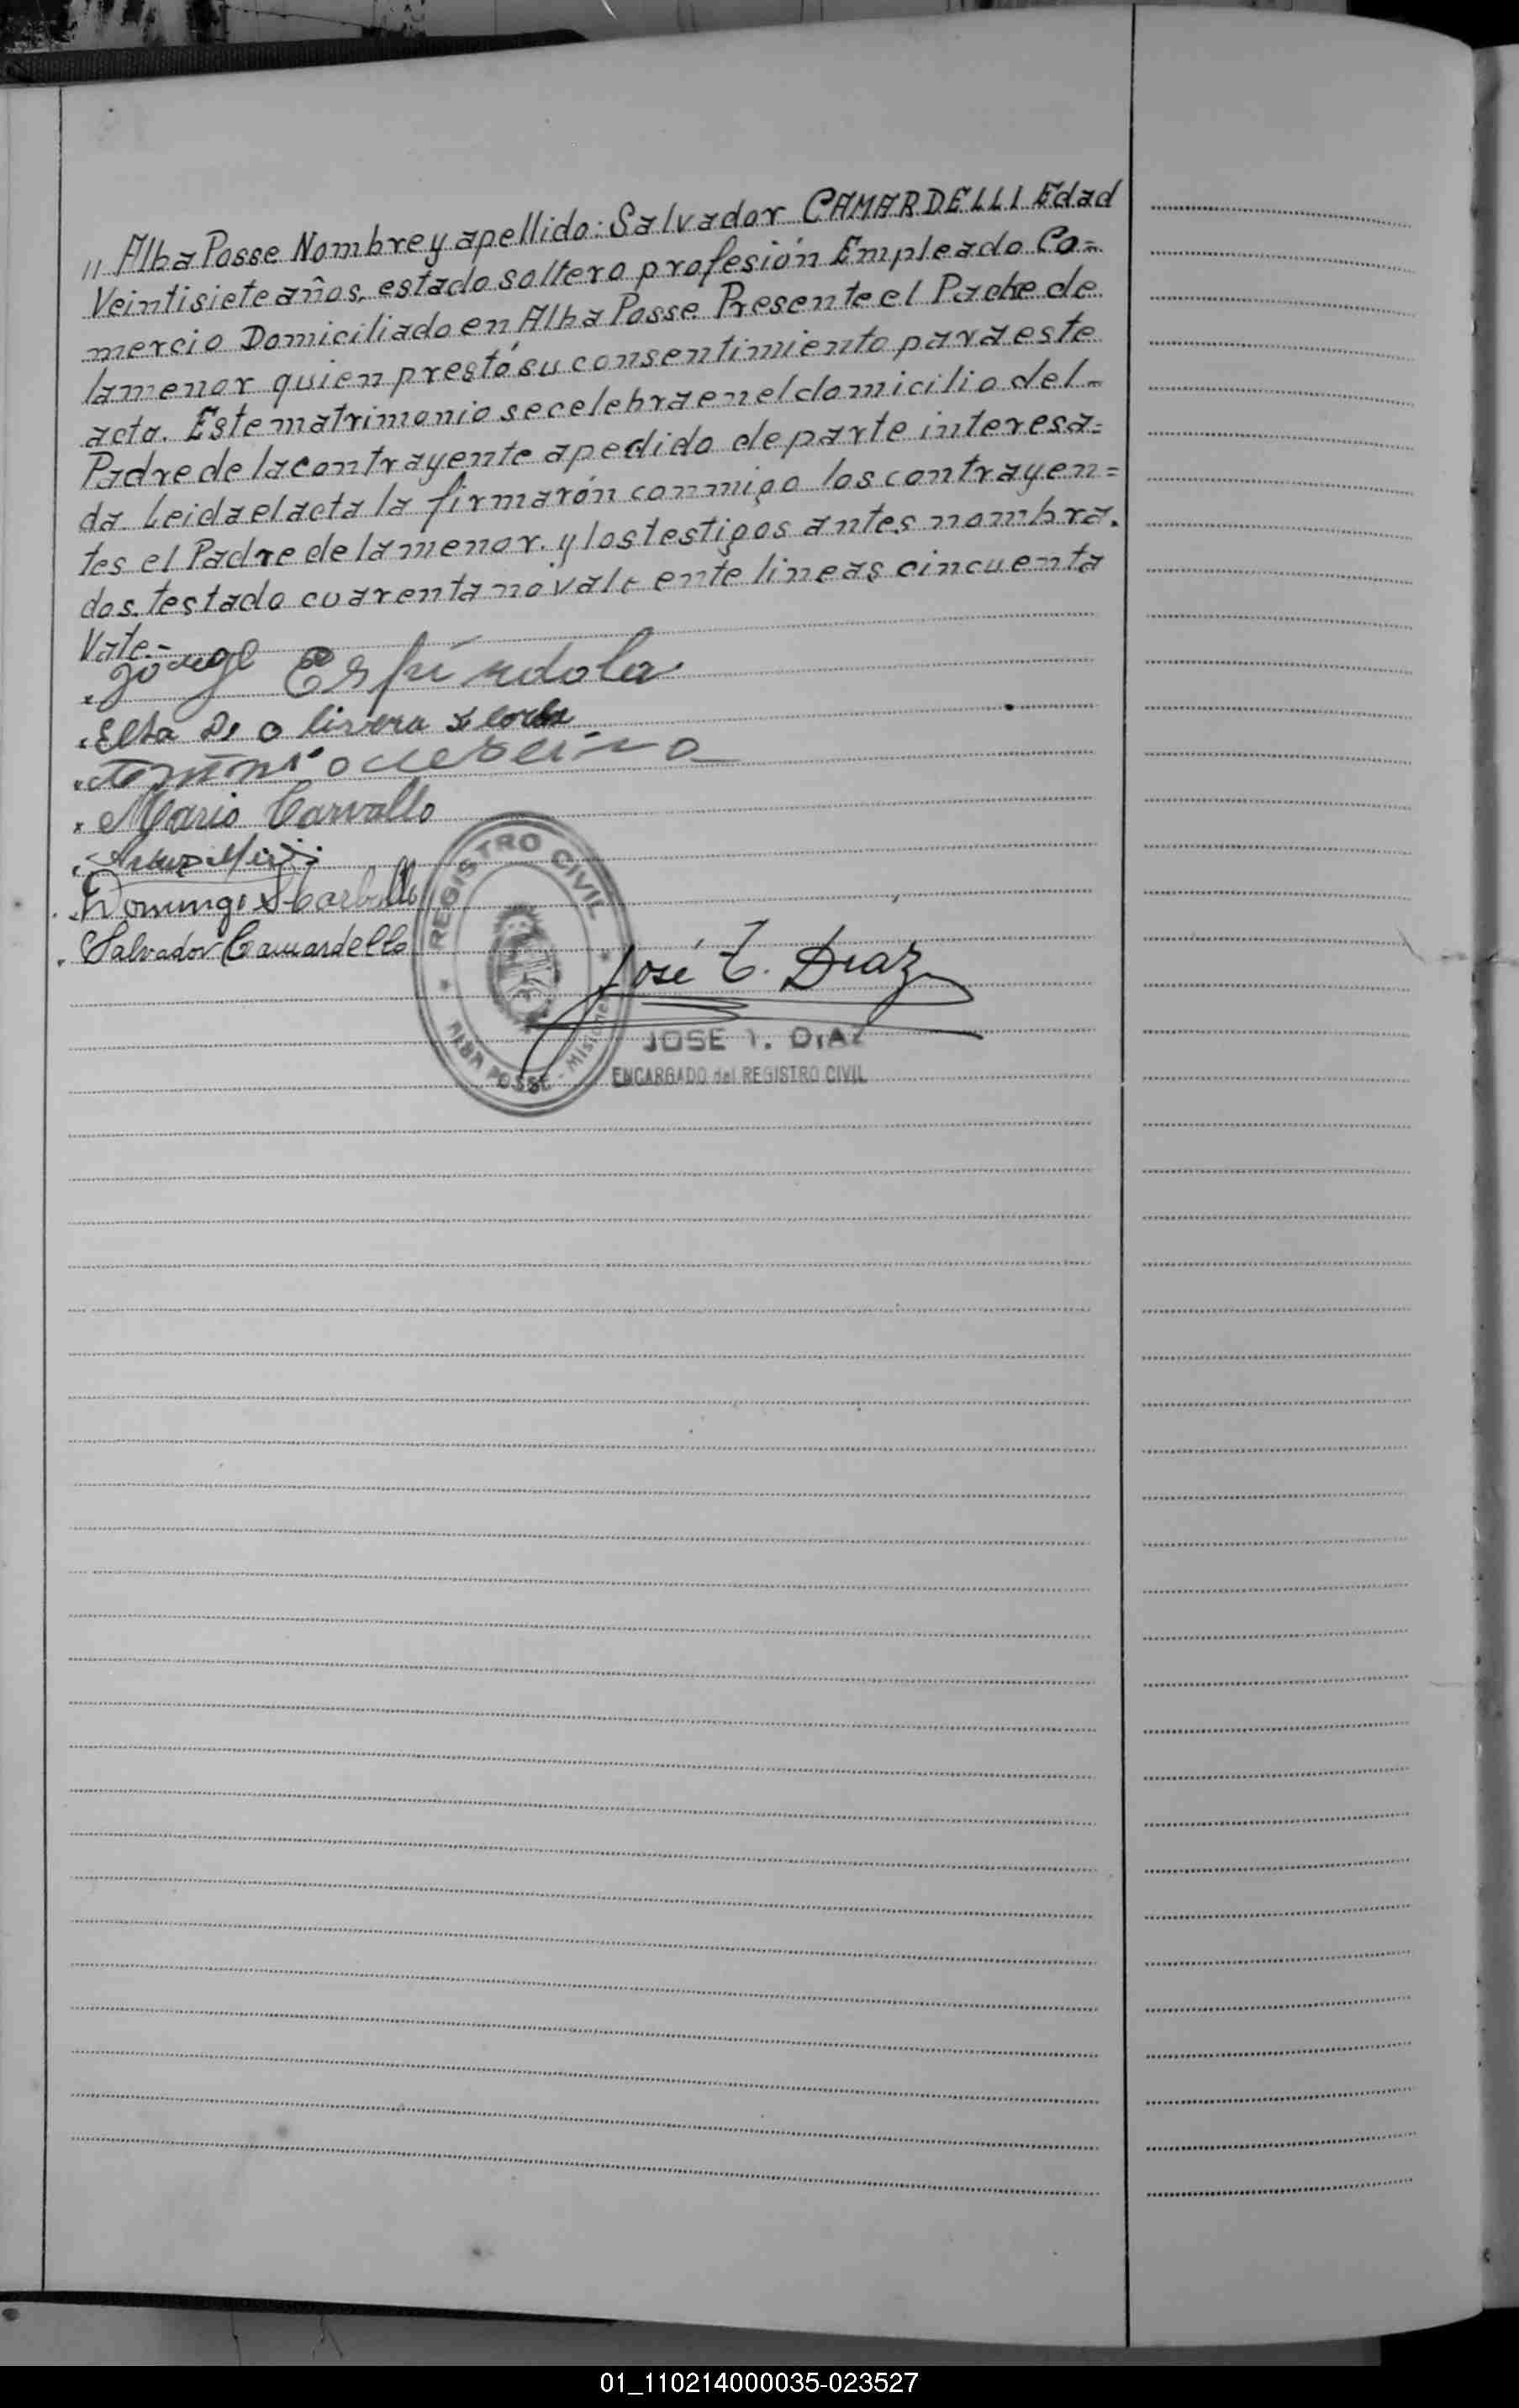 " Alba Posse Nombre y apellido: Salvador CAMARDELLI Edad
Veintisiete años, estado soltero profesión Empleado Co=
mercio Domiciliado en Alba Posse. Presente el Padre de
la menor quien prestó su consentimiento para este
acto. Este matrimonio se celebra en el domicilio del-
Padre de la contrayente a pedido de parte interesa=
da. Leida el acta la firmarón conmigo los contrayen=
tes el Padre de la menor. y los testigos antes nombra.
dos. testado cuarenta no vale ente lineas cincuenta
Vale.-
Espíndola
Elsa De Olivera
Mario Carvallo
Domingo
Salvador Camardelli
REGISTRO CIVIL
ALBA POSSE - Misiones
José I. Diaz
JOSE I. DIAZ
ENCARGADO del REGISTRO CIVIL
01_110214000035-023527